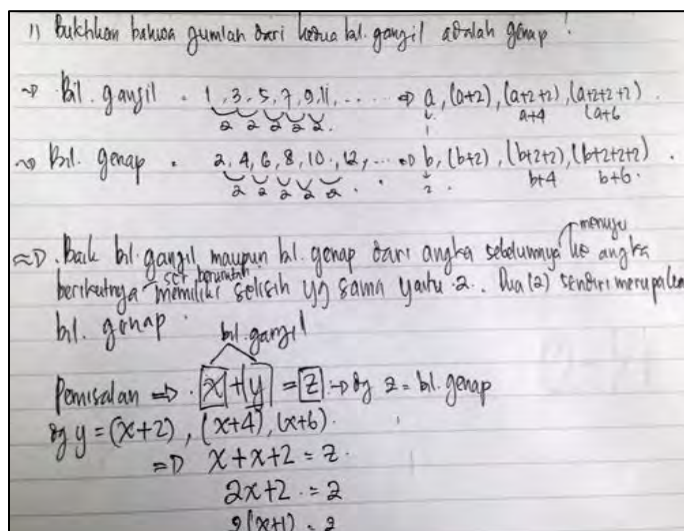 1) Buktikan bahwa jumlah dari kedua bil. ganjil adalah genap !
~> Bil. ganjil . 1, 3, 5, 7, 9, 11, ..... => a, (a+2), (a+2+2), (a+2+2+2) .
2 2 2 2 2. 1 a+4 (a+6
~> Bil. genap . 2, 4, 6, 8, 10, 12, ... => b, (b+2), (b+2+2), (b+2+2+2) .
2 2 2 2 2 . 2. b+4 b+6.
≈D. Baik bil. ganjil maupun bil. genap dari angka sebelumnya menuju ke angka
berikutnya scr berurutan memiliki selisih yg sama yaitu 2. Dua (2) sendiri
bil. genap.
bil. ganjil
Pemisalan => . x + y = z -> dg z = bil. genap
dg y = (x+2), (x+4), (x+6).
=> x + x + 2 = z.
2x + 2 . = 2
2(x+1) = 2